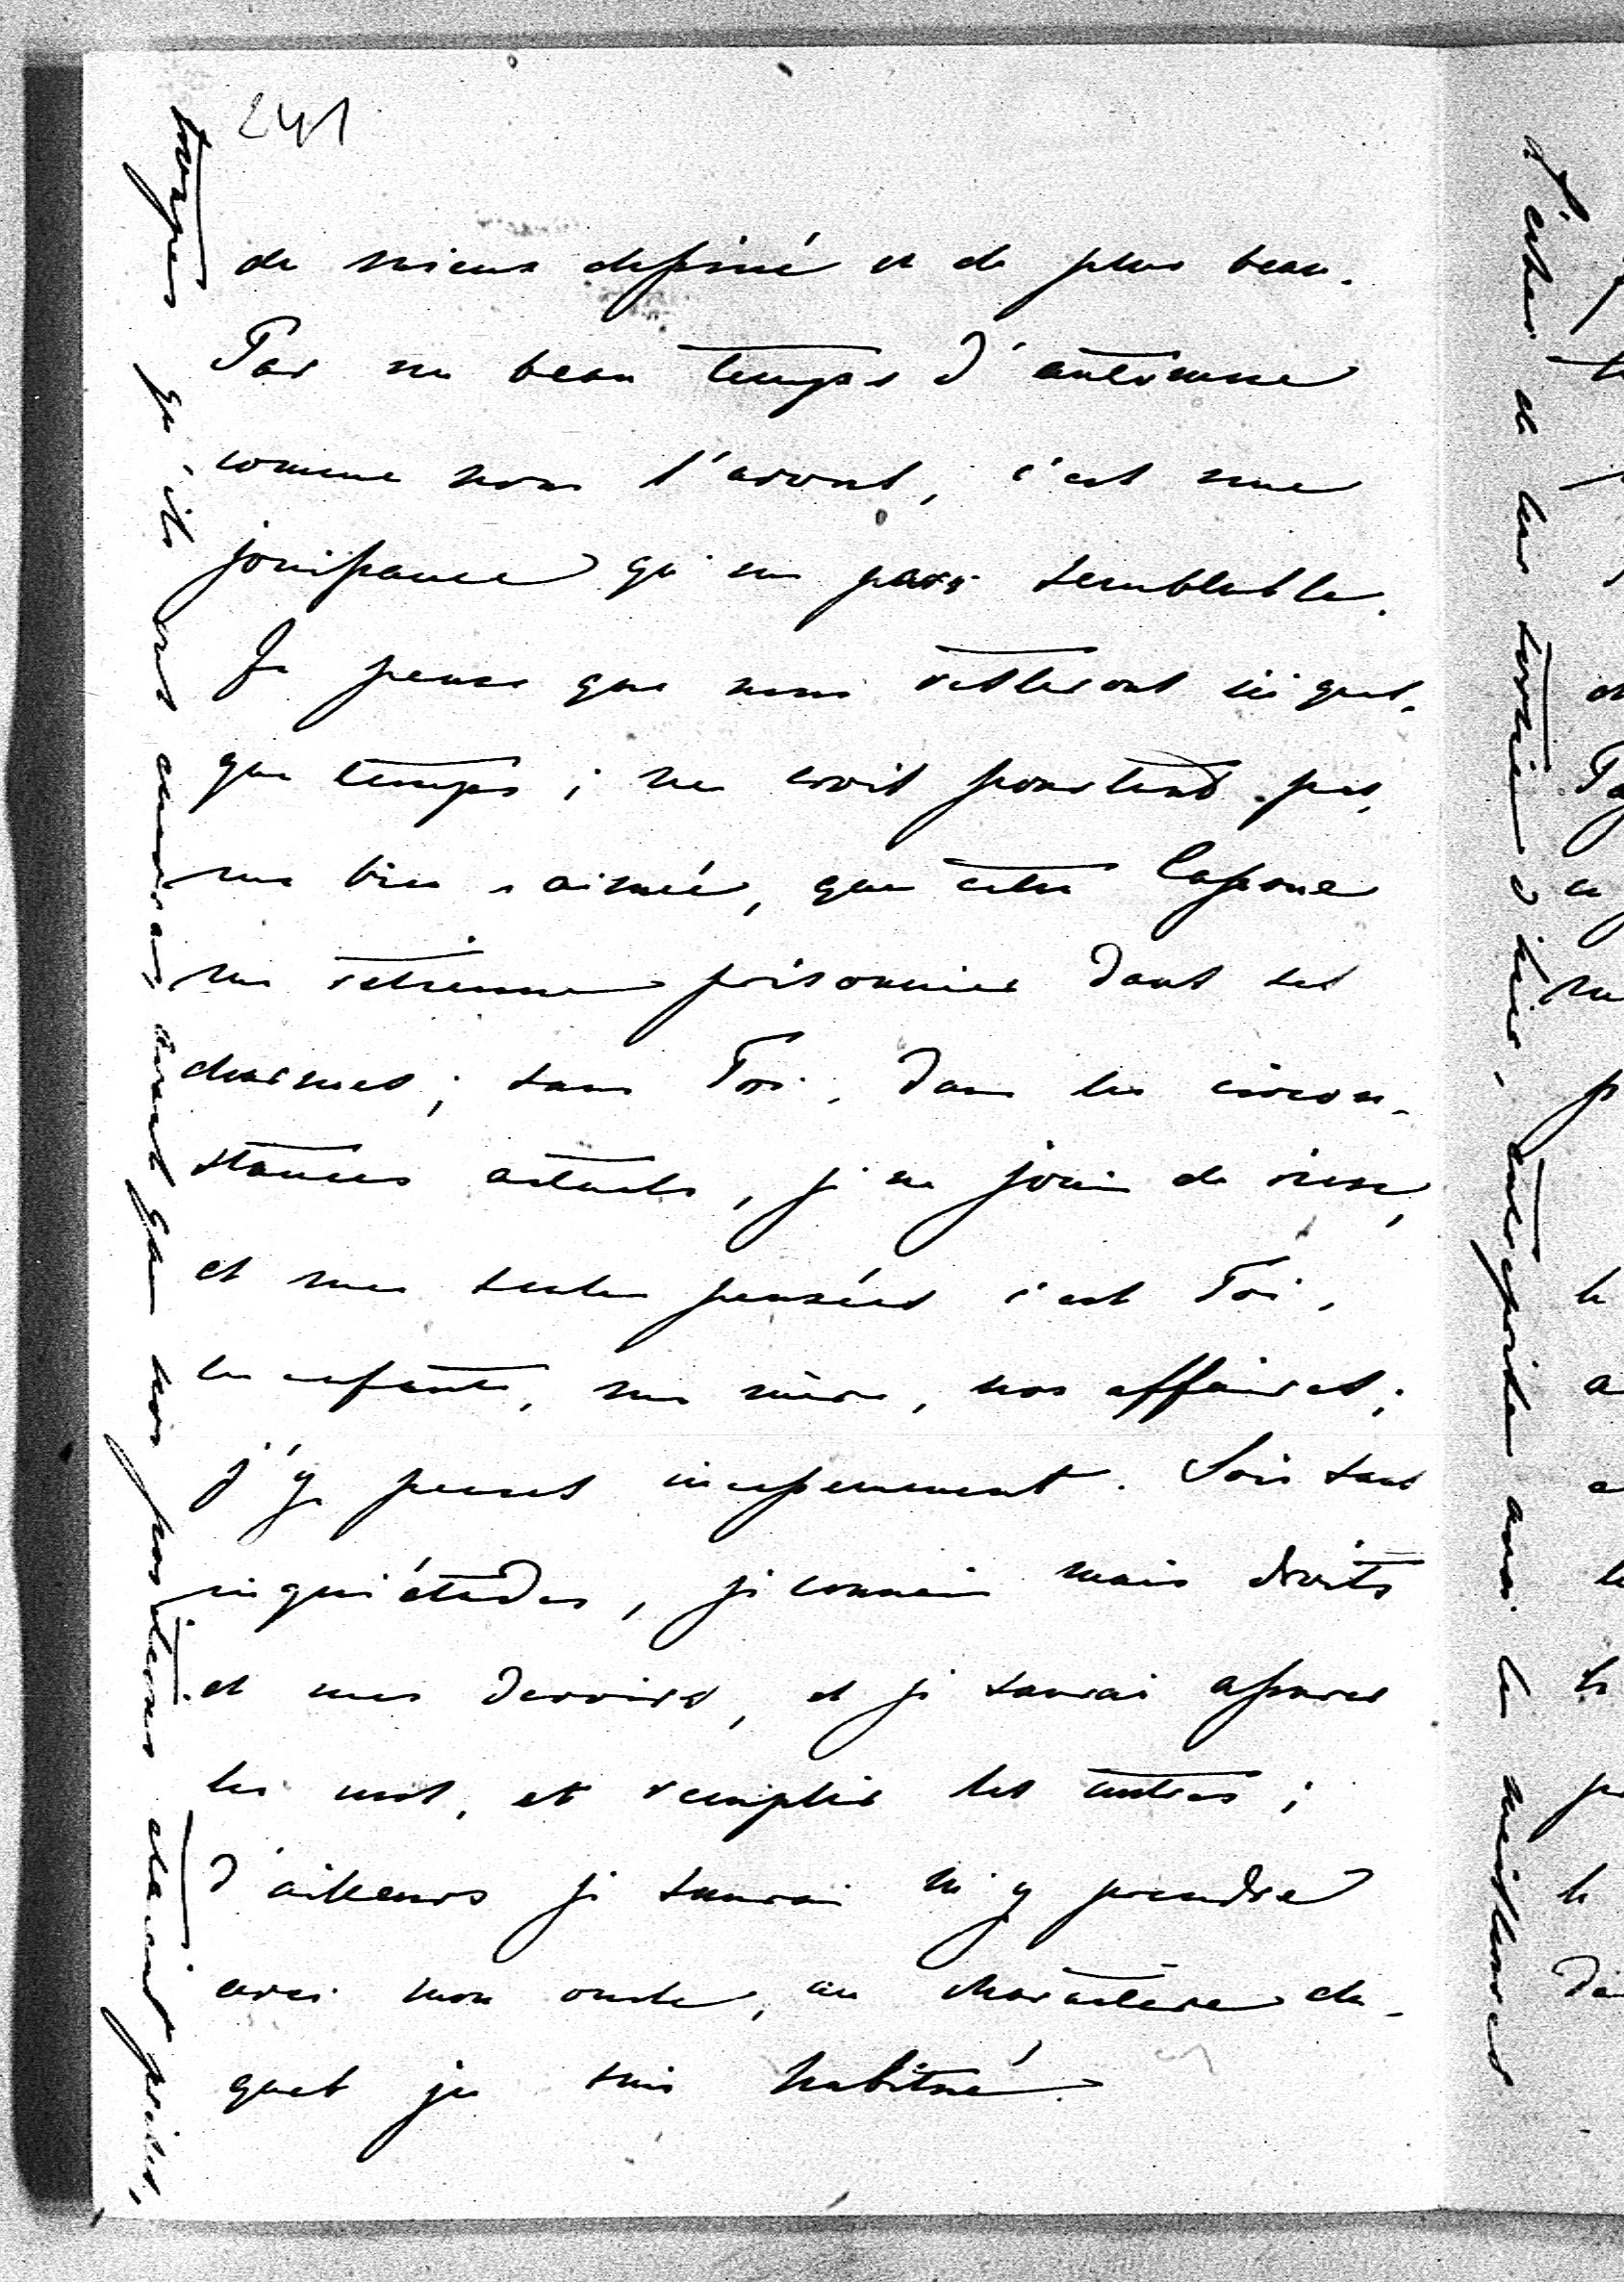 241
de mieux dessiné et de plus beau.
Par un beau temps d'automne
comme nous l'avons, c'est une
jouissance qu'un pays semblable.
Je pense que nous resterons ici quel-
que temps ; ne crois pourtant pas,
ma bien-aimée, que cette Capoue
me retienne prisonnier dans ses
charmes ; sans Toi, dans les circon-
stances actuels, je ne jouis de rien,
et mes seules pensées c'est Toi,
les enfants, ma mère, nos affaires ;
j'y penses incessement. Sois sans
inquiétudes, je connais mais droits
et mes devoirs, et je saurai assurer
les uns, et remplir les autres ;
d'ailleurs je saurai m'y prendre
avec mon oncle, au charactère du-
quel je suis habitué.
troupes qu'ils ont avant que nos positions étaient prises,
de leur avant les meilleures